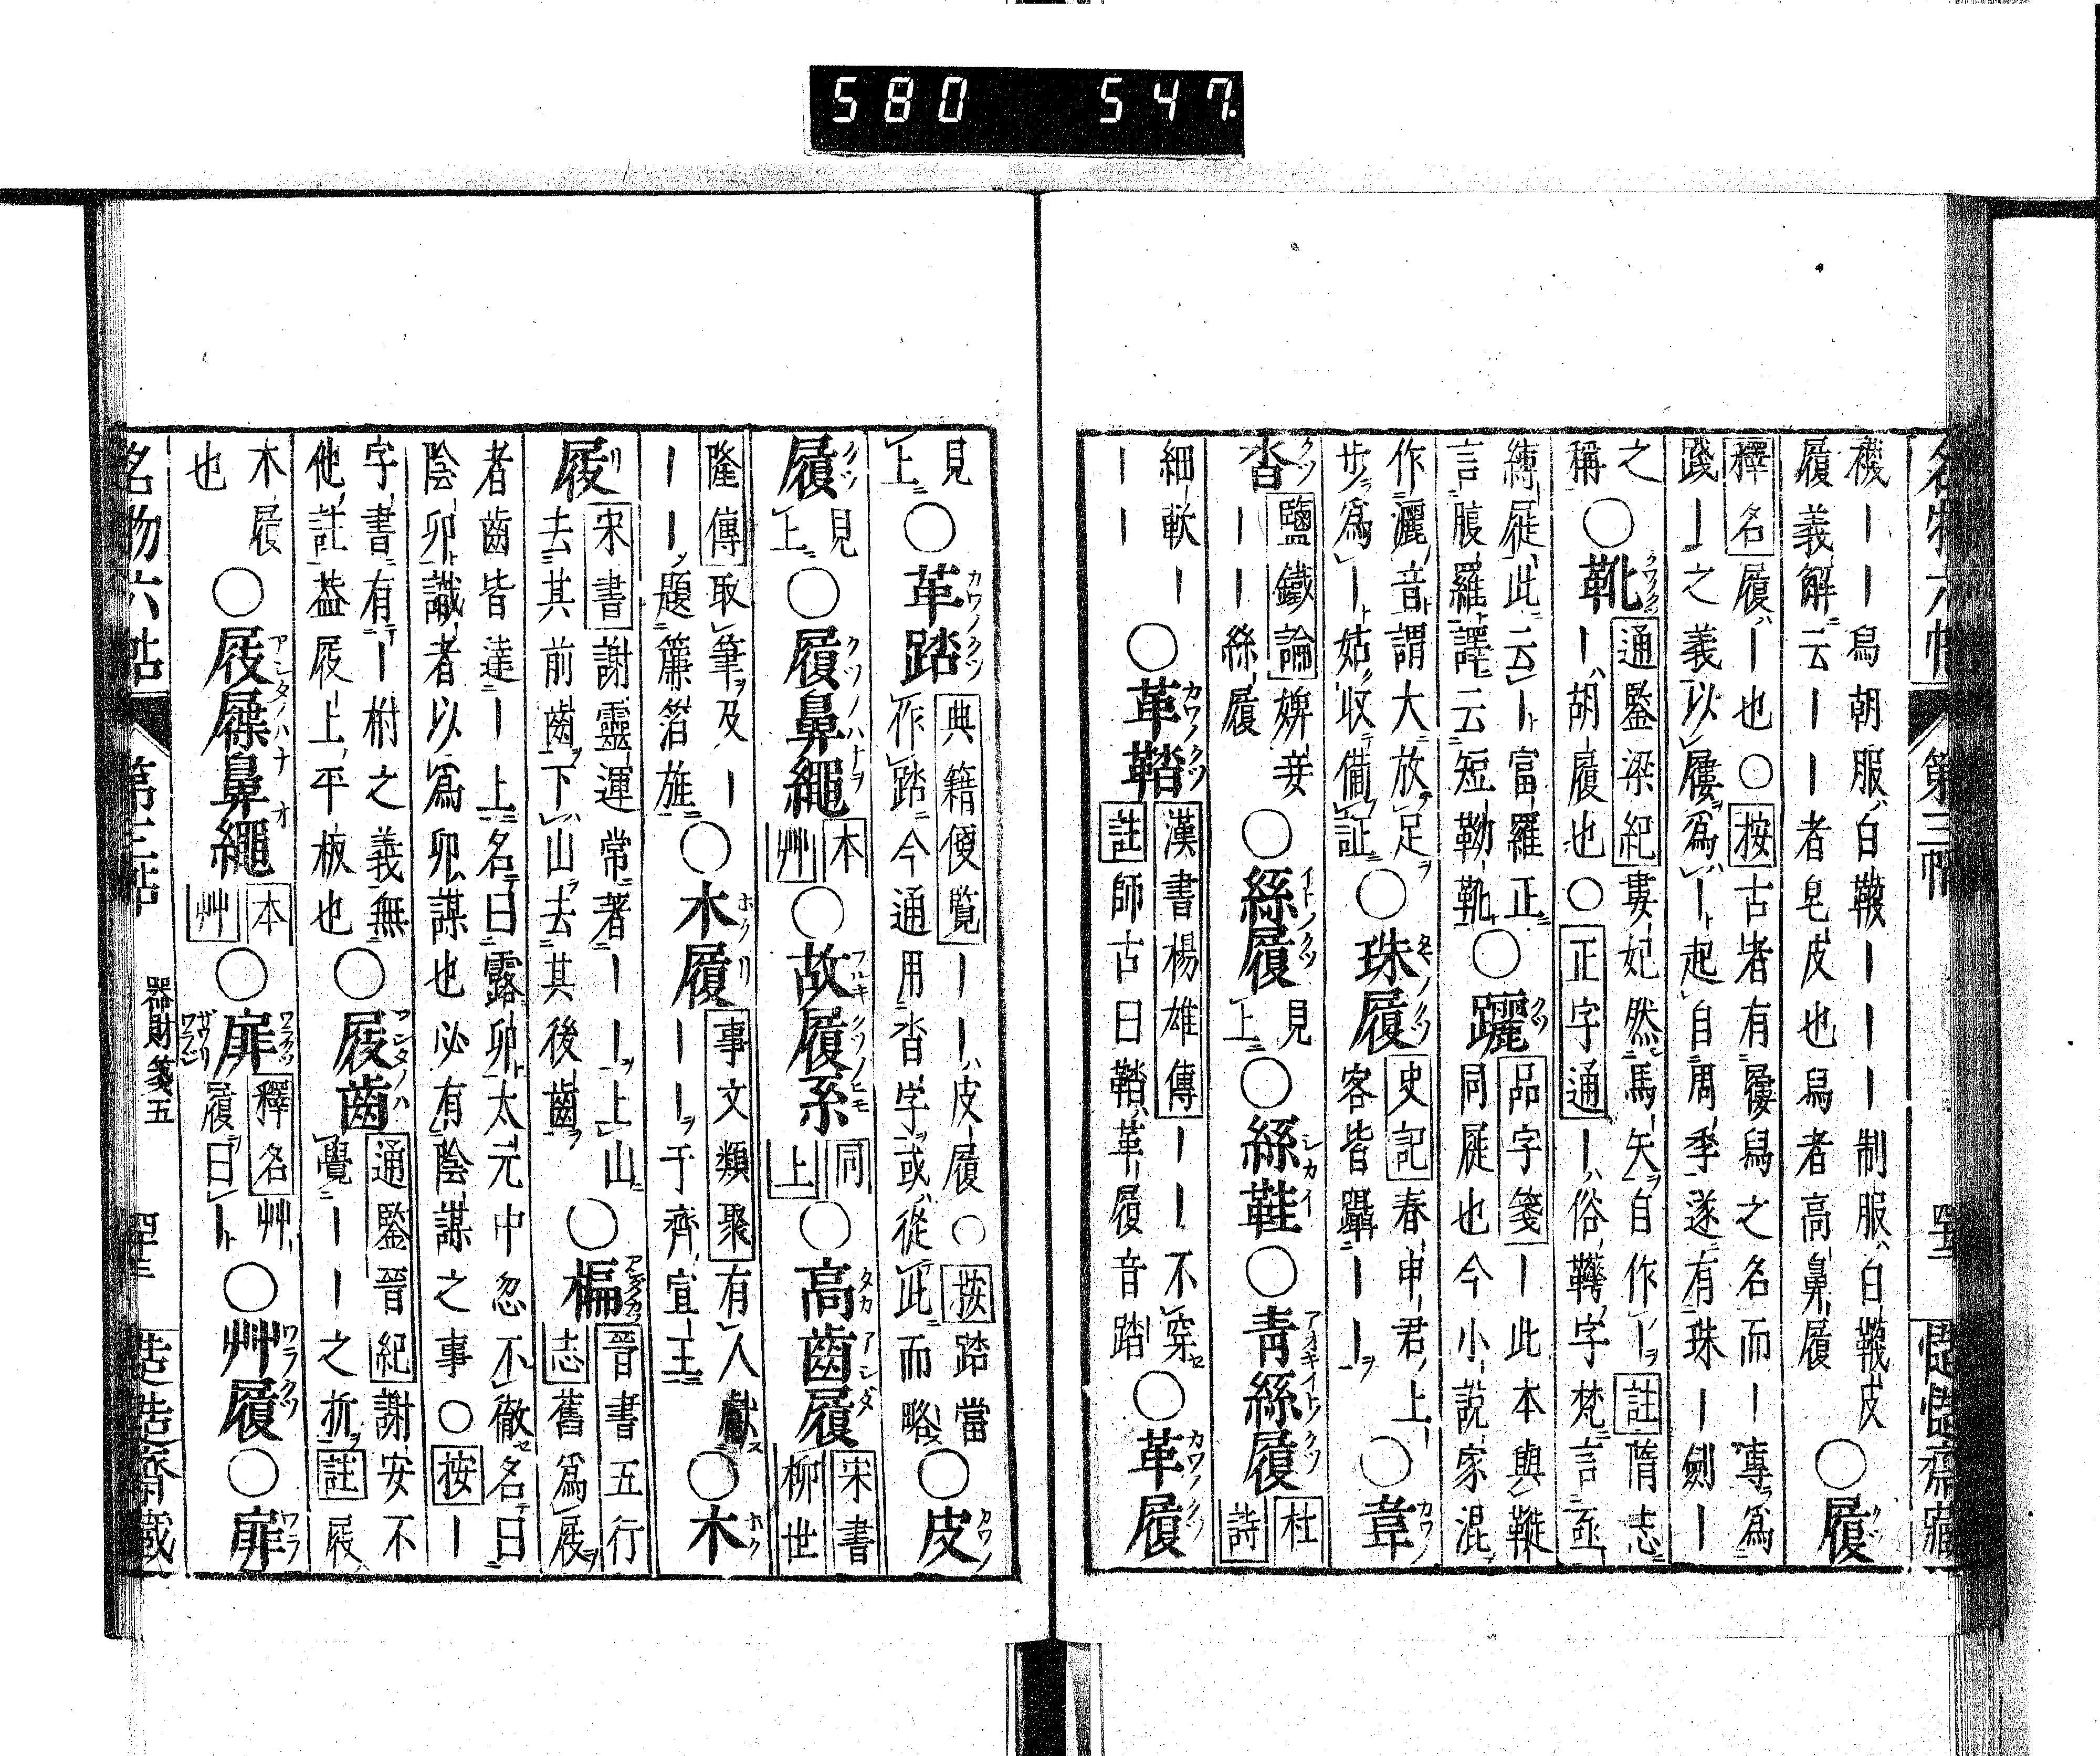 580 547.
名物六帖 第三帖 四十二 慥慥齋藏
襪｜｜舃朝服白韈｜｜｜制服白韈皮
履義解云｜｜者皂皮也舃者高鼻履
○履
釋名履｜也○按古者有屨舃之名而｜專爲
踐｜之義以屨爲｜起自周季遂有珠｜劍｜
之
稱
○靴
通鑒梁紀婁妃然馬矢自作｜註隋志
｜胡履也○正字通｜俗鞾字梵言亟
縛屣此云｜富羅正
言腹羅譯云短靿靴
○躧
品字箋｜此本與鞾
同屣也今小說家混
作灑音謂大放足
步爲｜姑收備証
○珠履
史記春申君上
客皆躡｜｜
○韋
沓
鹽鐵論婢妾
｜｜絲履
○絲履
見
上
○絲鞋○青絲履
杜
詩
細軟｜
｜｜
○革鞜
漢書楊雄傳｜｜不穿
註師古曰鞜革履音踏
○革履
見
上
○革踏
典籍便覧｜｜皮履○按踏當
作踏今通用沓字或從此而略
○皮
履
見
上
○履鼻繩
本
艸
○故履系
同
上
○高齒履
宋書
柳世
隆傳取筆及｜
｜｜題簾箔旌
○木履
事文類聚有人獻
｜｜于齊宣王
○木
屐
宋書謝靈運常著｜｜上山
去其前齒下山去其後齒
○楄
晉書五行
志舊爲屐
者齒皆達｜上名曰露卯太元中忽不徹名曰
陰卯識者以爲卯謀也必有陰謀之事○按｜
字書有｜柎之義無
他註葢屐上平板也
○屐齒
通鑒晉紀謝安不
覺｜｜之折註屐
木屐
也
○屐屧鼻繩
本
艸
○屝
釋名艸
履曰｜
○艸履○屝
名物六帖 第三帖 器財箋五 四十二 慥慥齋藏